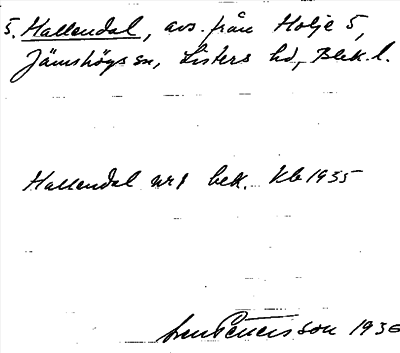 5. Hallendal, avs. från Holje 5,
Jämshögs sn, Listers hd, Blek. l.
Hallendal nr 1 bek. Kb 1935
Petersson 1936